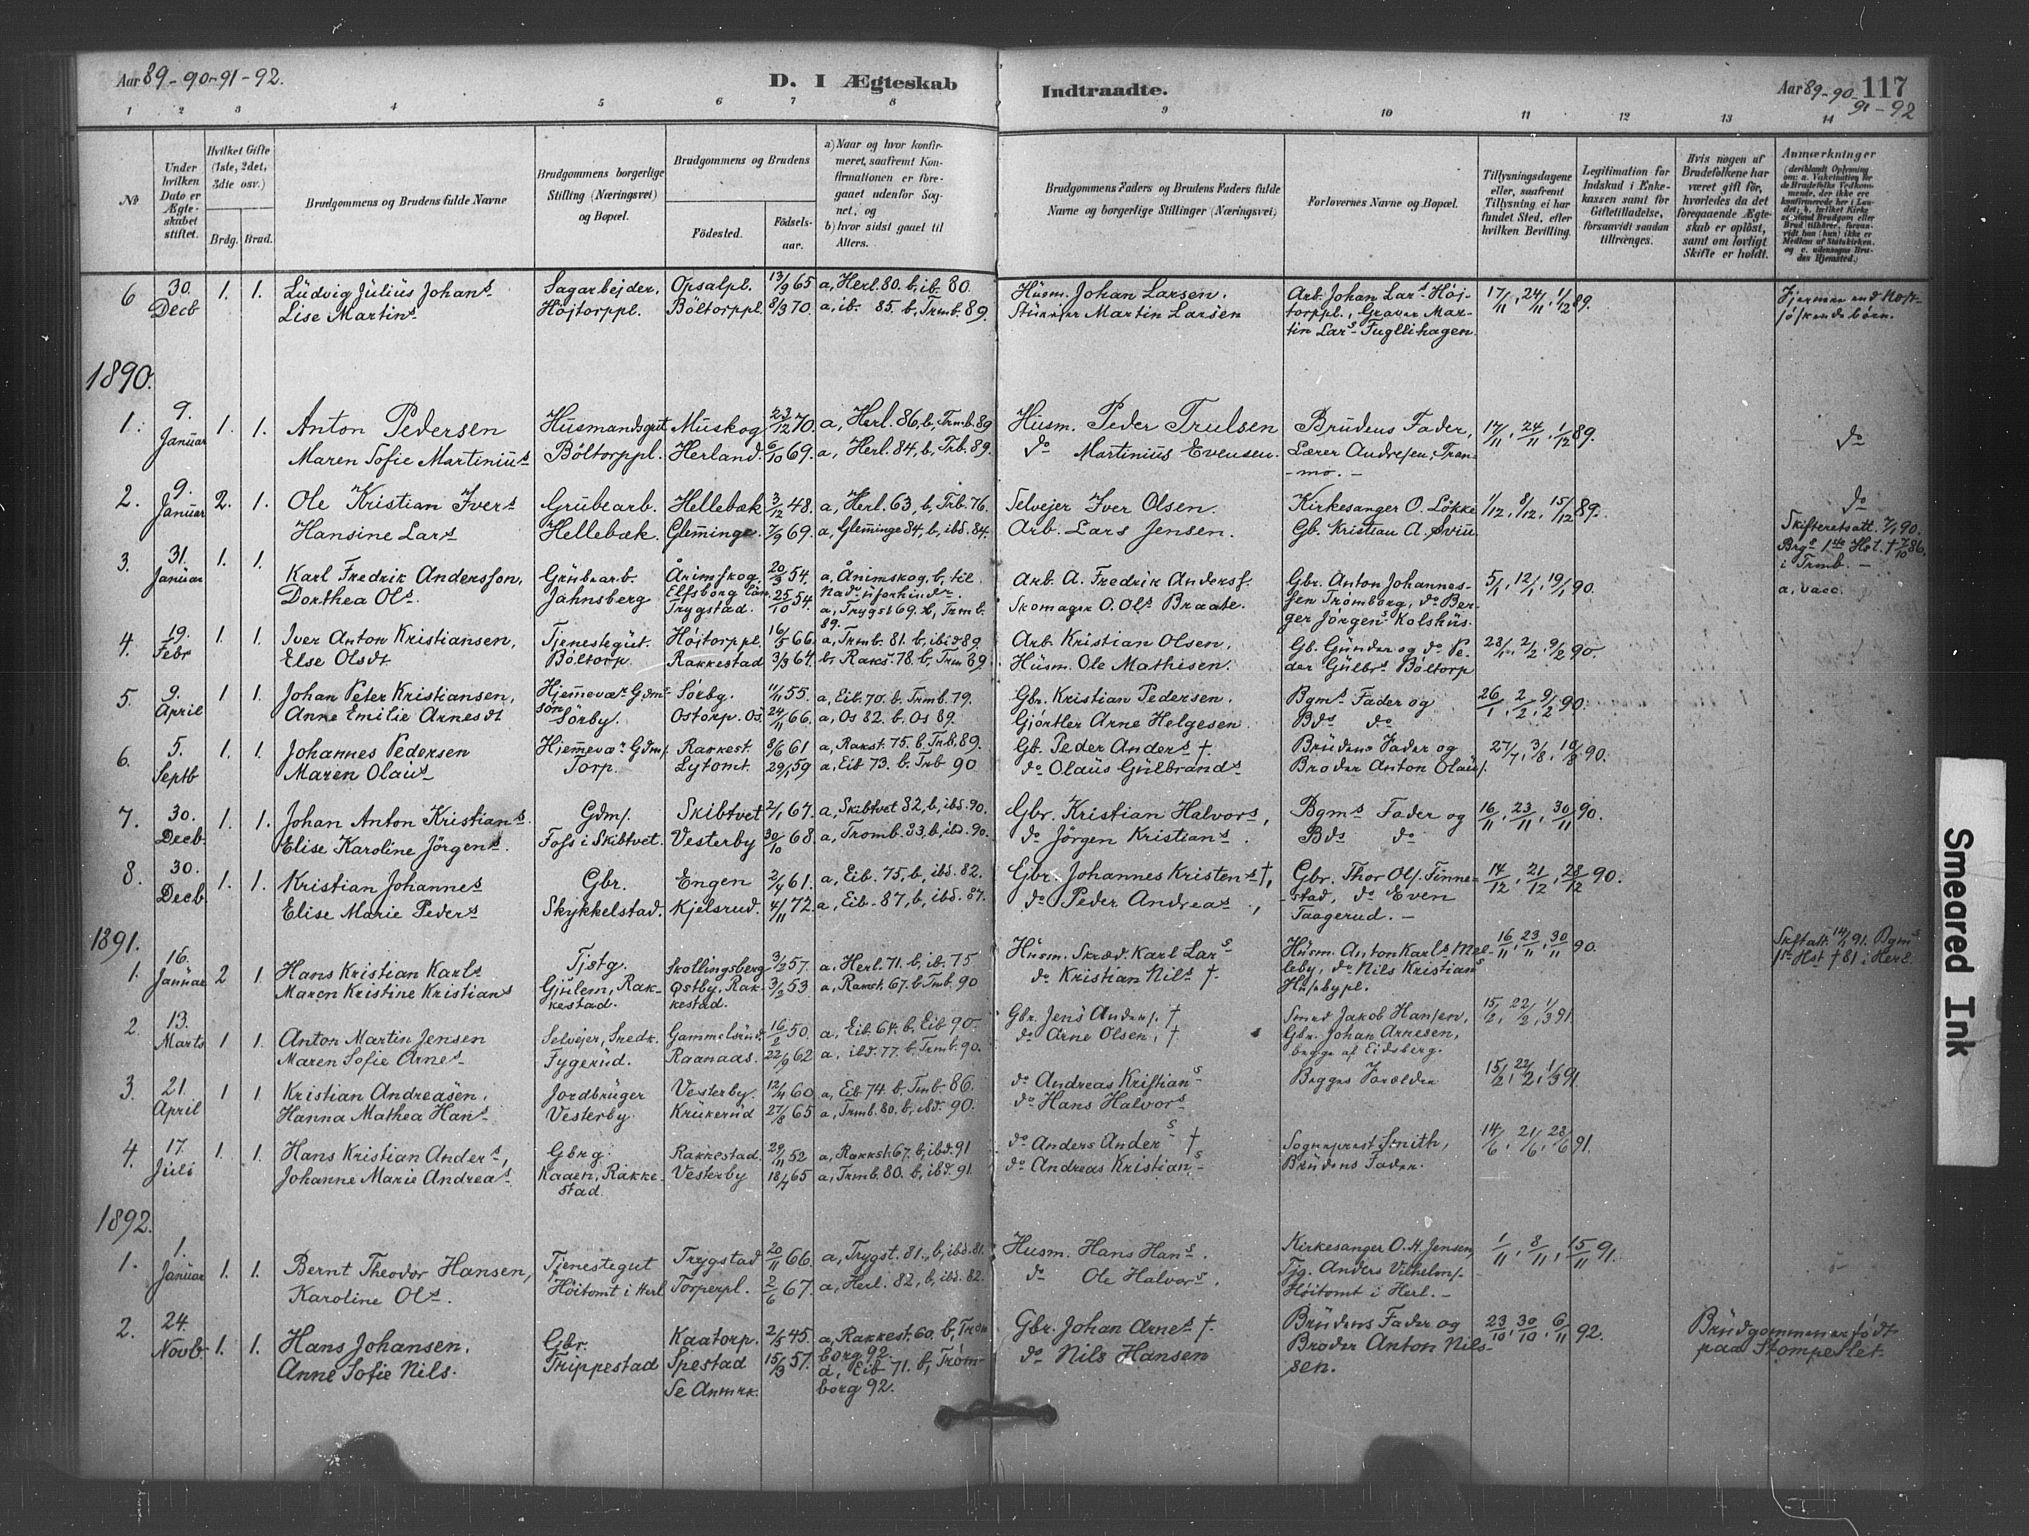 Aar 89-90-91-92.
D. I Ægteskab Indtraadte.
Aar 89-90- 117
91-92
1 2 3 4 5 6 7 8 9 10 11 12 13 14
No
Under hvilken Dato er Ægteskabet stiftet.
Hvilket Gifte (1ste, 2det, 3die osv.)
Brdg. Brud.
Brudgommens og Brudens fulde Navne
Brudgommens borgerlige Stilling (Næringsvei) og Bopæl.
Brudgommens og Brudens
Fødested. Fødselsaar.
a) Naar og hvor konfirmeret, saafremt Konfirmationen er foregaaet udenfor Sognet, og
b) hvor sidst gaaet til Alters.
Brudgommens Faders og Brudens Faders fulde Navne og borgerlige Stillinger (Næringsvei)
Forlovernes Navne og Bopæl.
Tillysningsdagene eller, saafremt Tillysning ei har fundet Sted, efter hvilken Bevilling.
Legitimation for Indskud i Enkekassen samt for Giftetilladelse, forsaavidt saadan tiltrænges.
Hvis nogen af Brudefolkene har været gift før, hvorledes da det foregaaende Ægteskab er opløst, samt om lovligt Skifte er holdt.
Anmærkninger
6 30. Decb 1. 1. Ludvig Julius Johans Sagarbejder, Opsalpl. 13/9 65 a, Herl. 80. b, ib. 80. Husm. Johan Larsen. Arb. Johan Lars Høj- 17/11, 24/11, 1/12 89.
Lise Martins Højtorppl. Böltorppl. 8/3 70. a, ib. 85. b, Trmb. 89. Martin Larsen torppl., Graver Martin Lars Fugllihagen.
1890.
1. 9. Januar 1. 1. Anton Pedersen Husmandsgut Muskog 23/12 70. a, Herl. 86, b, Trmb. 89 Husm. Peder Trulsen Brudens Fader, 17/11, 24/11, 1/12 89. do
Maren Sofie Martinius Böltorppl. Herland. 6/10 69. a, Herl. 84, b, Trb. 89. do Martinius Evensen. Lærer Andresen, Tranmo. -
2. 9. Januar 2. 1. Ole Kristian Ivers Grubearb. Hellebæk 3/12 48. a, Herl. 63, b, Trb. 76. Selvejer Iver Olsen. Kirkesanger O. Løkke 1/12, 8/12, 15/12 89. do
Hansine Lars Hellebæk. Glemminge 7/9 69. a, Glemminge 84, b, ibd. 84. Arb. Lars Jensen. Gb. Kristian A. Sviu
Skifteretsatt. 7/1 90. Brgs 1ste Hst. † 7/10 86. i Trmb. -
3. 31. Januar 1. 1. Karl Fredrik Andersson, Grubearb. Ånimskog, Elfsborg län 20/3 54. a, Ånimskog, b, til Arb. A. Fredrik Anderss. Gbr. Anton Johannes- 5/1, 12/1, 19/1 90. a, vacc.
Dorthea Ols. Jahnsberg Trygstad. 25/10 54 a, Trygst. 69. b, Trmb. 89. Skomager O. Ols Braate. sen Trømborg, do Berger Jørgens Kolshus.
4. 19. Febr 1. 1. Iver Anton Kristiansen, Tjenestegut. Højtorppl. 16/5 66. a, Trmb. 81. b, ibid 89. Arb. Kristian Olsen. Gb. Gunder og do Pe- 23/1, 2/2, 9/2 90.
Else Olsdt Böltorp. Rakkestad 3/3 64. b, Raks. 78. b, Trm 89 Husm. Ole Mathisen. der Gulbrs Böltorp
5 9. April 1 1. Johan Peter Kristiansen, Hjemmevær Gdm- Sørby. 11/11 55. a, Eib. 70. b. Trmb. 79. Gbr. Kristian Pedersen. Bgms Fader og 26/1, 2/2, 9/2 90.
Anne Emilie Arnesdt søn Sörby. Ostorp. Os. 24/11 66. a, Os 82. b. Os 89. Gjörtler Arne Helgesen Bds do
6. 5. Septb 1. 1. Johannes Pedersen Hjemmevær Gdms. Rakkest. 8/6 61 a, Rakst. 75. b. Trb. 89. Gb. Peder Anders † Brudens Fader og 27/7, 3/8, 10/8 90.
Maren Olaus Torp. Lytomt. 29/1 59 a, Eib 73. b. Trb 90 do Olaus Gulbrands Broder Anton Olaus.
7. 30. Decb. 1. 1. Johan Anton Kristians. Gdms. Skibtvet 2/1 67. a, Skibtvet 82, b, ibd. 90. Gbr. Kristian Halvors, Bgms Fader og 16/11, 23/11, 30/11 90.
Elise Karoline Jörgens. Foss i Skibtvet. Vesterby 30/10 68. a, Tromb. 83, b, ibd. 90. do Jörgen Kristians. Bds do
8. 30. Decb. 1. 1. Kristian Johannes Gbr. Engen 2/4 61. a, Eib. 75, b, ibd. 82. Gbr. Johannes Kristens †, Gbr. Thor Ols. Finne- 14/12, 21/12, 28/12 90.
Elise Marie Peders Skykkelstad. Kjelsrud. 4/11 72. a, Eib. 87, b, ibd. 87. do Peder Andreas, stad, do Even Taagerud. -
1891.
1. 16. Januar 2 1. Hans Kristian Karls Tjstg. Skollingsberg 3/2 57. a, Herl. 71. b, ib. 75 Husm. Skræd. Karl Lars Husm. Anton Karls Mel- 16/11, 23/11, 30/11 90. Skftatt. 14/1 91. Bgms 1ste Hst † 81 i Herl.
Maren Kristine Kristians Gjulem, Rakkestad. Østby, Rakkestad. 3/2 53. a, Rakst. 67. b. Tmb. 90 do Kristian Nils †. leby, do Nils Kristians Husebypl.
2. 13. Marts 1 1. Anton Martin Jensen Selvejer, Snedk. Gammelsrud. 16/2 50 a, Eib 64. b, Eib 90. Gbr. Jens Anders. † Smed Jakob Hansen, 15/2, 22/2, 1/3 91.
Maren Sofie Arnes. Fygerud. Raanaas. 22/9 62 a, ibd. 77. b, Trmb. 90. do Arne Olsen, † Gbr. Johan Arnesen, begge af Eidsberg.
3 21. April 1 1. Kristian Andreasen. Jordbruger Vesterby. 12/4 60 a, Eib 74. b. Tmb. 86. do Andreas Kristians Begges Forældre 15/2, 22/2, 1/3 91.
Hanna Mathea Hans. Vesterby. Krukerud 27/8 65 a, Trmb. 80. b, ibd. 90. do Hans Halvors
4. 17. Juli 1. 1. Hans Kristian Anders, Gbrg. Rakkestad. 29/11 52 a, Rakkst. 67. b, ibd. 91 do Anders Anders † Sogneprest Smith, 14/6, 21/6, 28/6 91.
Johanne Marie Andreas. Kaaen, Rakkestad. Vesterby 18/7 65 a, Trmb. 80. b, ibd. 91. do Andreas Kristians. Brudens Fader.
1892.
1. 1. Januar 1. 1. Bernt Theodor Hansen, Tjenestegut Trygstad 20/11 66. a, Trygst. 81., b, ibd. 81. Husm. Hans Hans. Kirkesanger O. H. Jensen, 1/11, 8/11, 15/11 91.
Karoline Ols. Höitomt i Herl Torperpl. 2/6 67. a, Herl. 82, b, ibd. 82. do Ole Halvors. Tjg. Anders Vilhelms. Höitomt i Herl. -
2. 24. Novb. 1. 1. Hans Johansen. Gbr. Kaatorp. 2/5 45. a, Rakkest. 60. b, Trømborg 92. Gbr. Johan Arnes †. Brudens Fader og 23/10, 30/10, 6/11 92. Brudgommen er født
Anne Sofie Nils. Trippestad Spestad 15/3 57. a, Eib. 71. b, Trømborg 92. do Nils Hansen Broder Anton Nilssen. paa Stompeslet.
Se Anmrk.
Smeared Ink